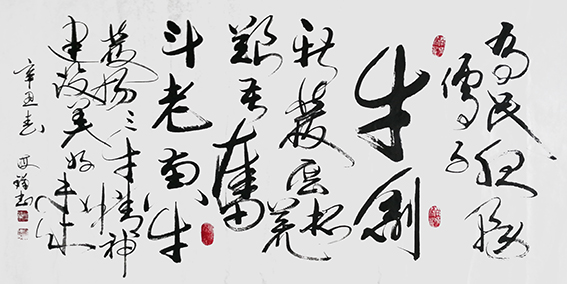 为民服务
孺子
牛创
新发展拓荒
艰苦奋
斗老黄牛
发扬三牛精神
建设美好未来
辛丑春 艾 书